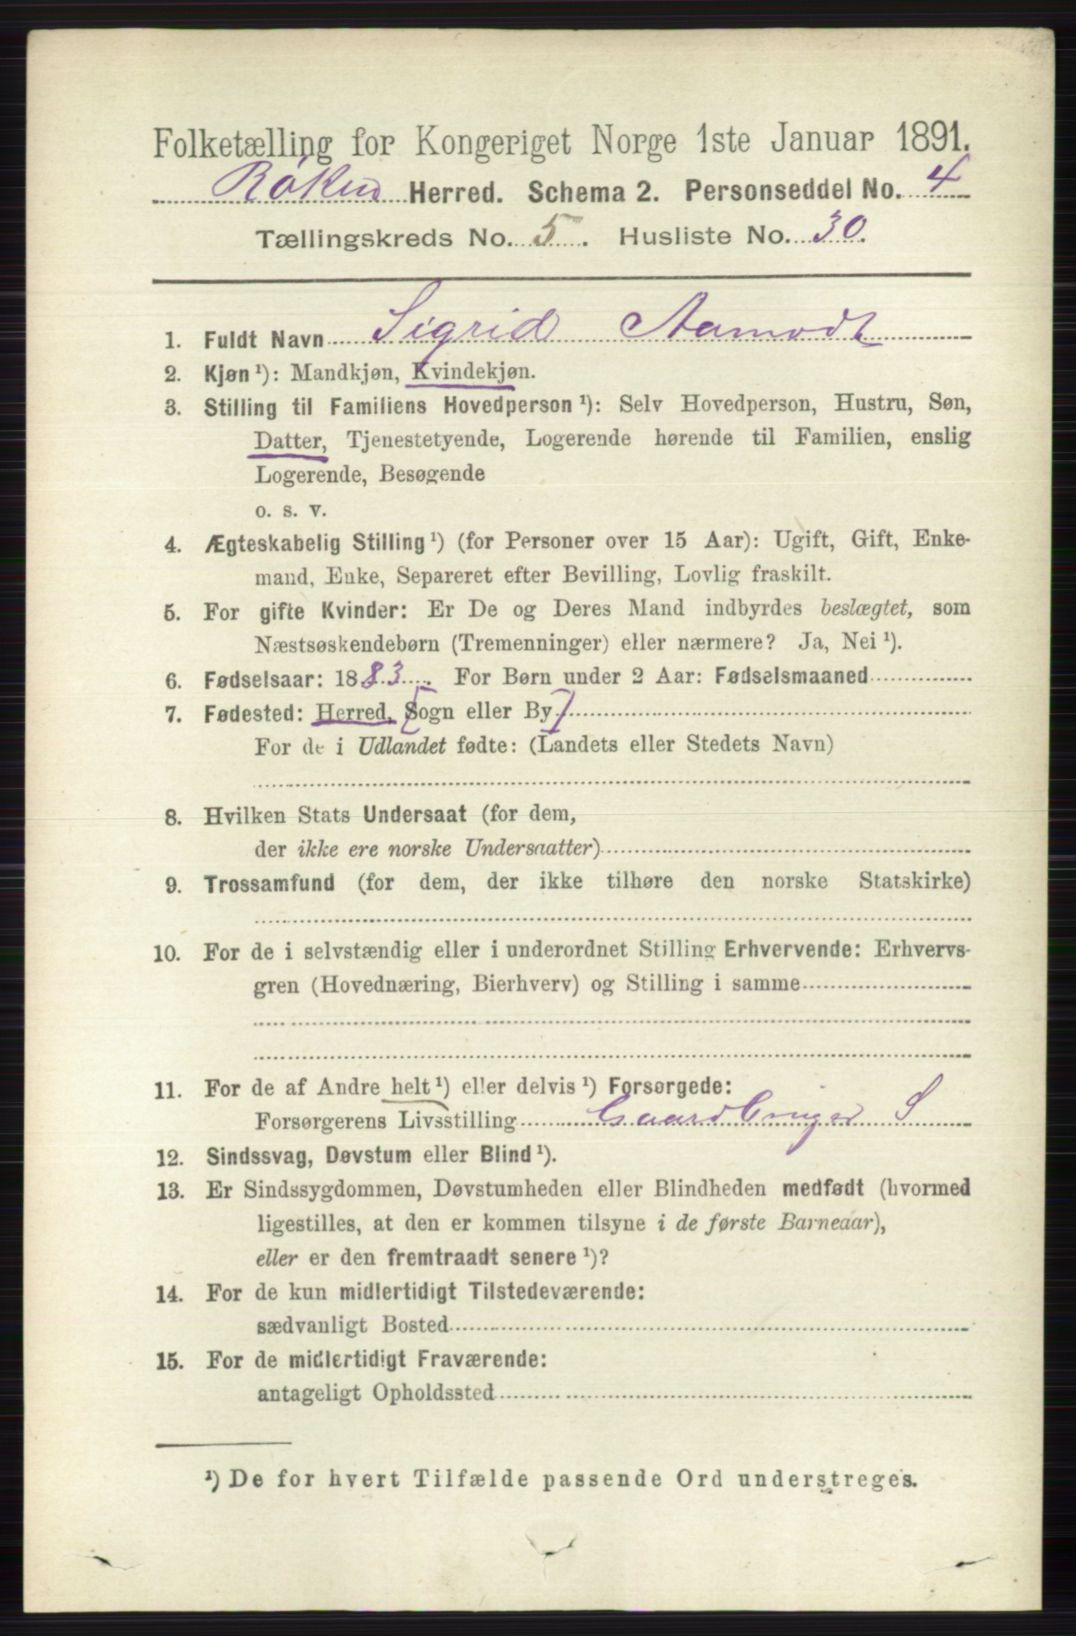 Folketælling for Kongeriget Norge 1ste Januar 1891.
Røken Herred. Schema 2. Personseddel No. 4
Tællingskreds No. 5. Husliste No. 30.
1. Fuldt Navn Sigrid Aamodt
2. Kjøn ¹): Mandkjøn, Kvindekjøn.
3. Stilling til Familiens Hovedperson ¹): Selv Hovedperson, Hustru, Søn,
Datter, Tjenestetyende, Logerende hørende til Familien, enslig
Logerende, Besøgende
o. s. v.
4. Ægteskabelig Stilling ¹) (for Personer over 15 Aar): Ugift, Gift, Enke-
mand, Enke, Separeret efter Bevilling, Lovlig fraskilt.
5. For gifte Kvinder: Er De og Deres Mand indbyrdes beslægtet, som
Næstsøskendebørn (Tremenninger) eller nærmere? Ja, Nei ¹).
6. Fødselsaar: 1883. For Børn under 2 Aar: Fødselsmaaned
7. Fødested: Herred, [Sogn eller By]
For de i Udlandet fødte: (Landets eller Stedets Navn)
8. Hvilken Stats Undersaat (for dem,
der ikke ere norske Undersaatter)
9. Trossamfund (for dem, der ikke tilhøre den norske Statskirke)
10. For de i selvstændig eller i underordnet Stilling Erhvervende: Erhvervs-
gren (Hovednæring, Bierhverv) og Stilling i samme
11. For de af Andre helt ¹) eller delvis ¹) Forsørgede:
Forsørgerens Livsstilling Gaardbruger S
12. Sindssvag, Døvstum eller Blind ¹).
13. Er Sindssygdommen, Døvstumheden eller Blindheden medfødt (hvormed
ligestilles, at den er kommen tilsyne i de første Barneaar),
eller er den fremtraadt senere ¹)?
14. For de kun midlertidigt Tilstedeværende:
sædvanligt Bosted
15. For de midlertidigt Fraværende:
antageligt Opholdssted
¹) De for hvert Tilfælde passende Ord understreges.